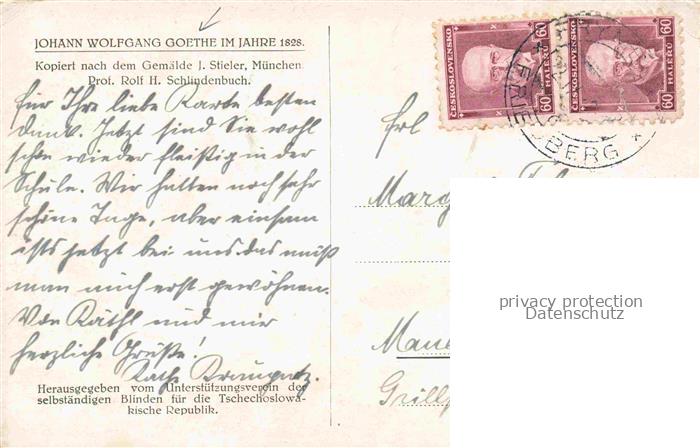 JOHANN WOLFGANG GOETHE IM JAHRE 1828.
Kopiert nach dem Gemälde J. Stieler, München
Prof. Rolf H. Schlindenbuch.
für Ihre liebe Karte besten
Dank. Jetzt sind Sie wohl
schon wieder fleißig in der
Schule. Wir hatten noch sehr
schöne Tage, aber einsam
ists jetzt bei uns, das muß
man auch erst gewöhnen.
Von Käthl und mir
herzliche Grüße!
Herausgegeben vom Unterstützungsverein der
selbständigen Blinden für die Tschechoslowa-
kische Republik.
ČESKOSLOVENSKO
60 HALÉŘŮ 60
ČESKOSLOVENSKO
60 HALÉŘŮ 60
BERG
Frl
privacy protection
Datenschutz